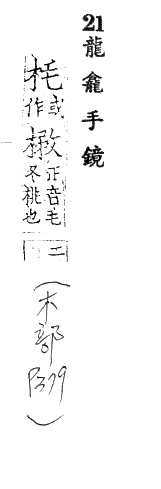 21龍龕手鏡
枆或作
正音毛冬桃也二
(木部P379)